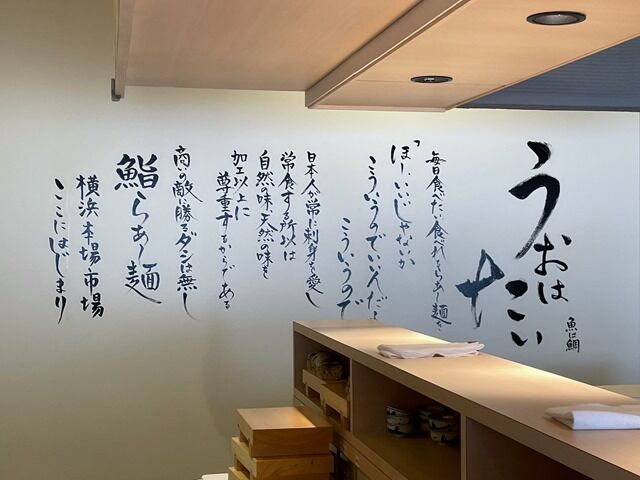 うおはたい
魚は鯛
毎日食べたい食べれるらあー麺を
「ほーいいじゃないか
こういうのでいいんだよ
こういうので
日本人が常に刺身を愛し
常食する所以は
自然の味、天然の味を
加工以上に
尊重するからである
商いの敵に勝るダシは無し
鮨らあー麺
横浜本場・市場
ここにはじまり